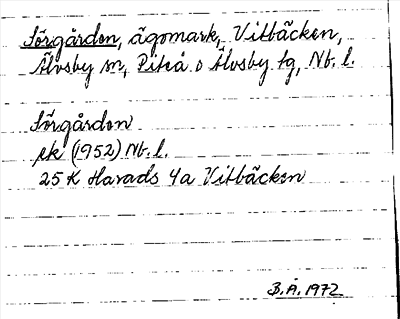 Sörgården, ägomark, Vitbäcken,
Älvsby sn, Piteå o Älvsby tg, Nb. l.
Sörgården
ek (1952) Nb. l.
25 K Harads 4a Vitbäcken
B.Å. 1972